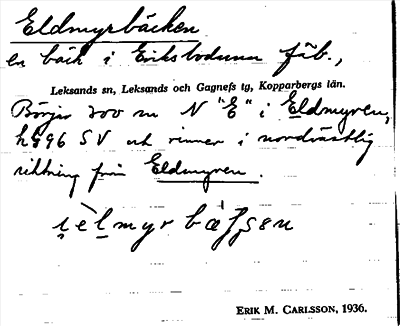 Eldmyrbäcken
en bäck i Eriksbodarna fäb.,
Leksands sn, Leksands och Gagnefs tg, Kopparbergs län.
Börjar 200 m N "E" i Eldmyren,
h 96 SV och rinner i nordvästlig
riktning från Eldmyren.
ERIK M. CARLSSON, 1936.